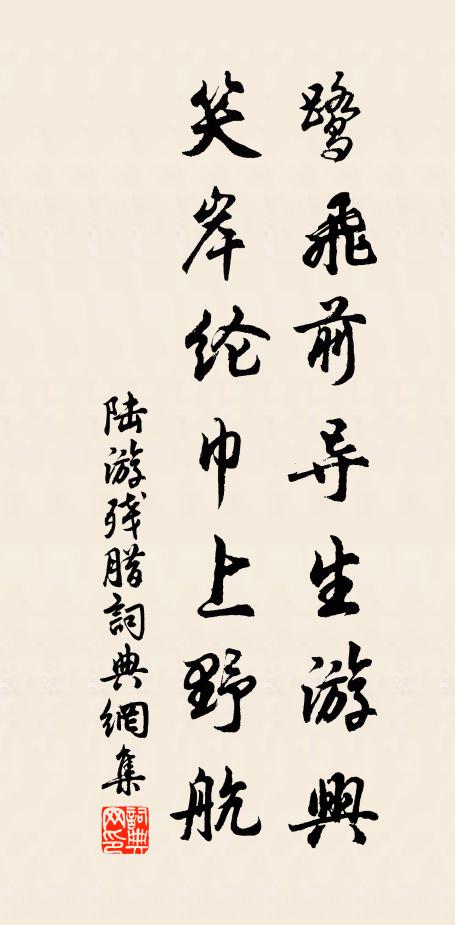 鹭飞前导生游興
笑岸纶巾上野航
陆游残腊詞典網集
詞典网印